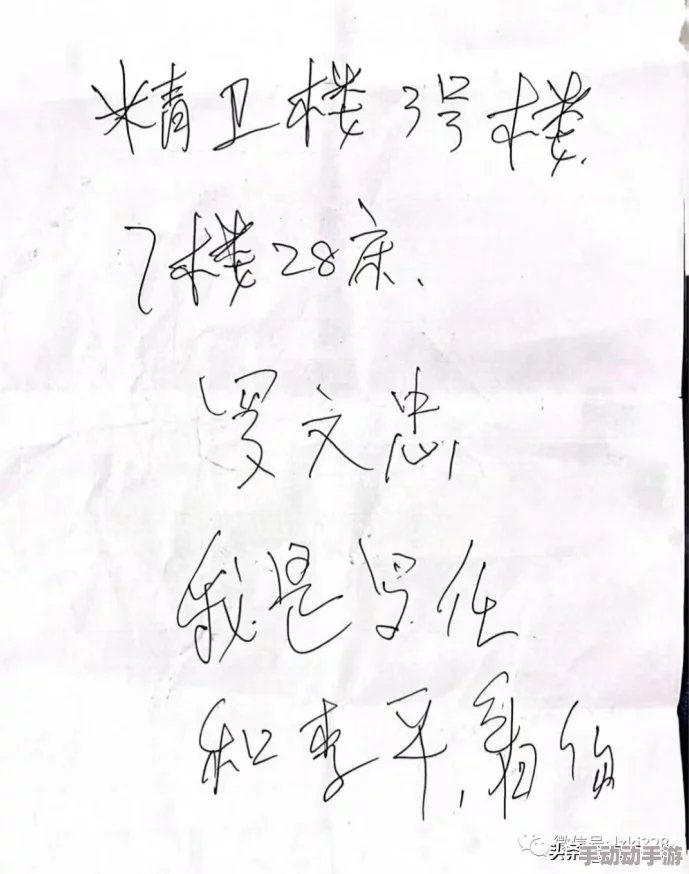 精卫楼3号楼.
7楼28床、
罗文忠
我是
和李平,看你
微信号:lzlj328
头条
手动动手游